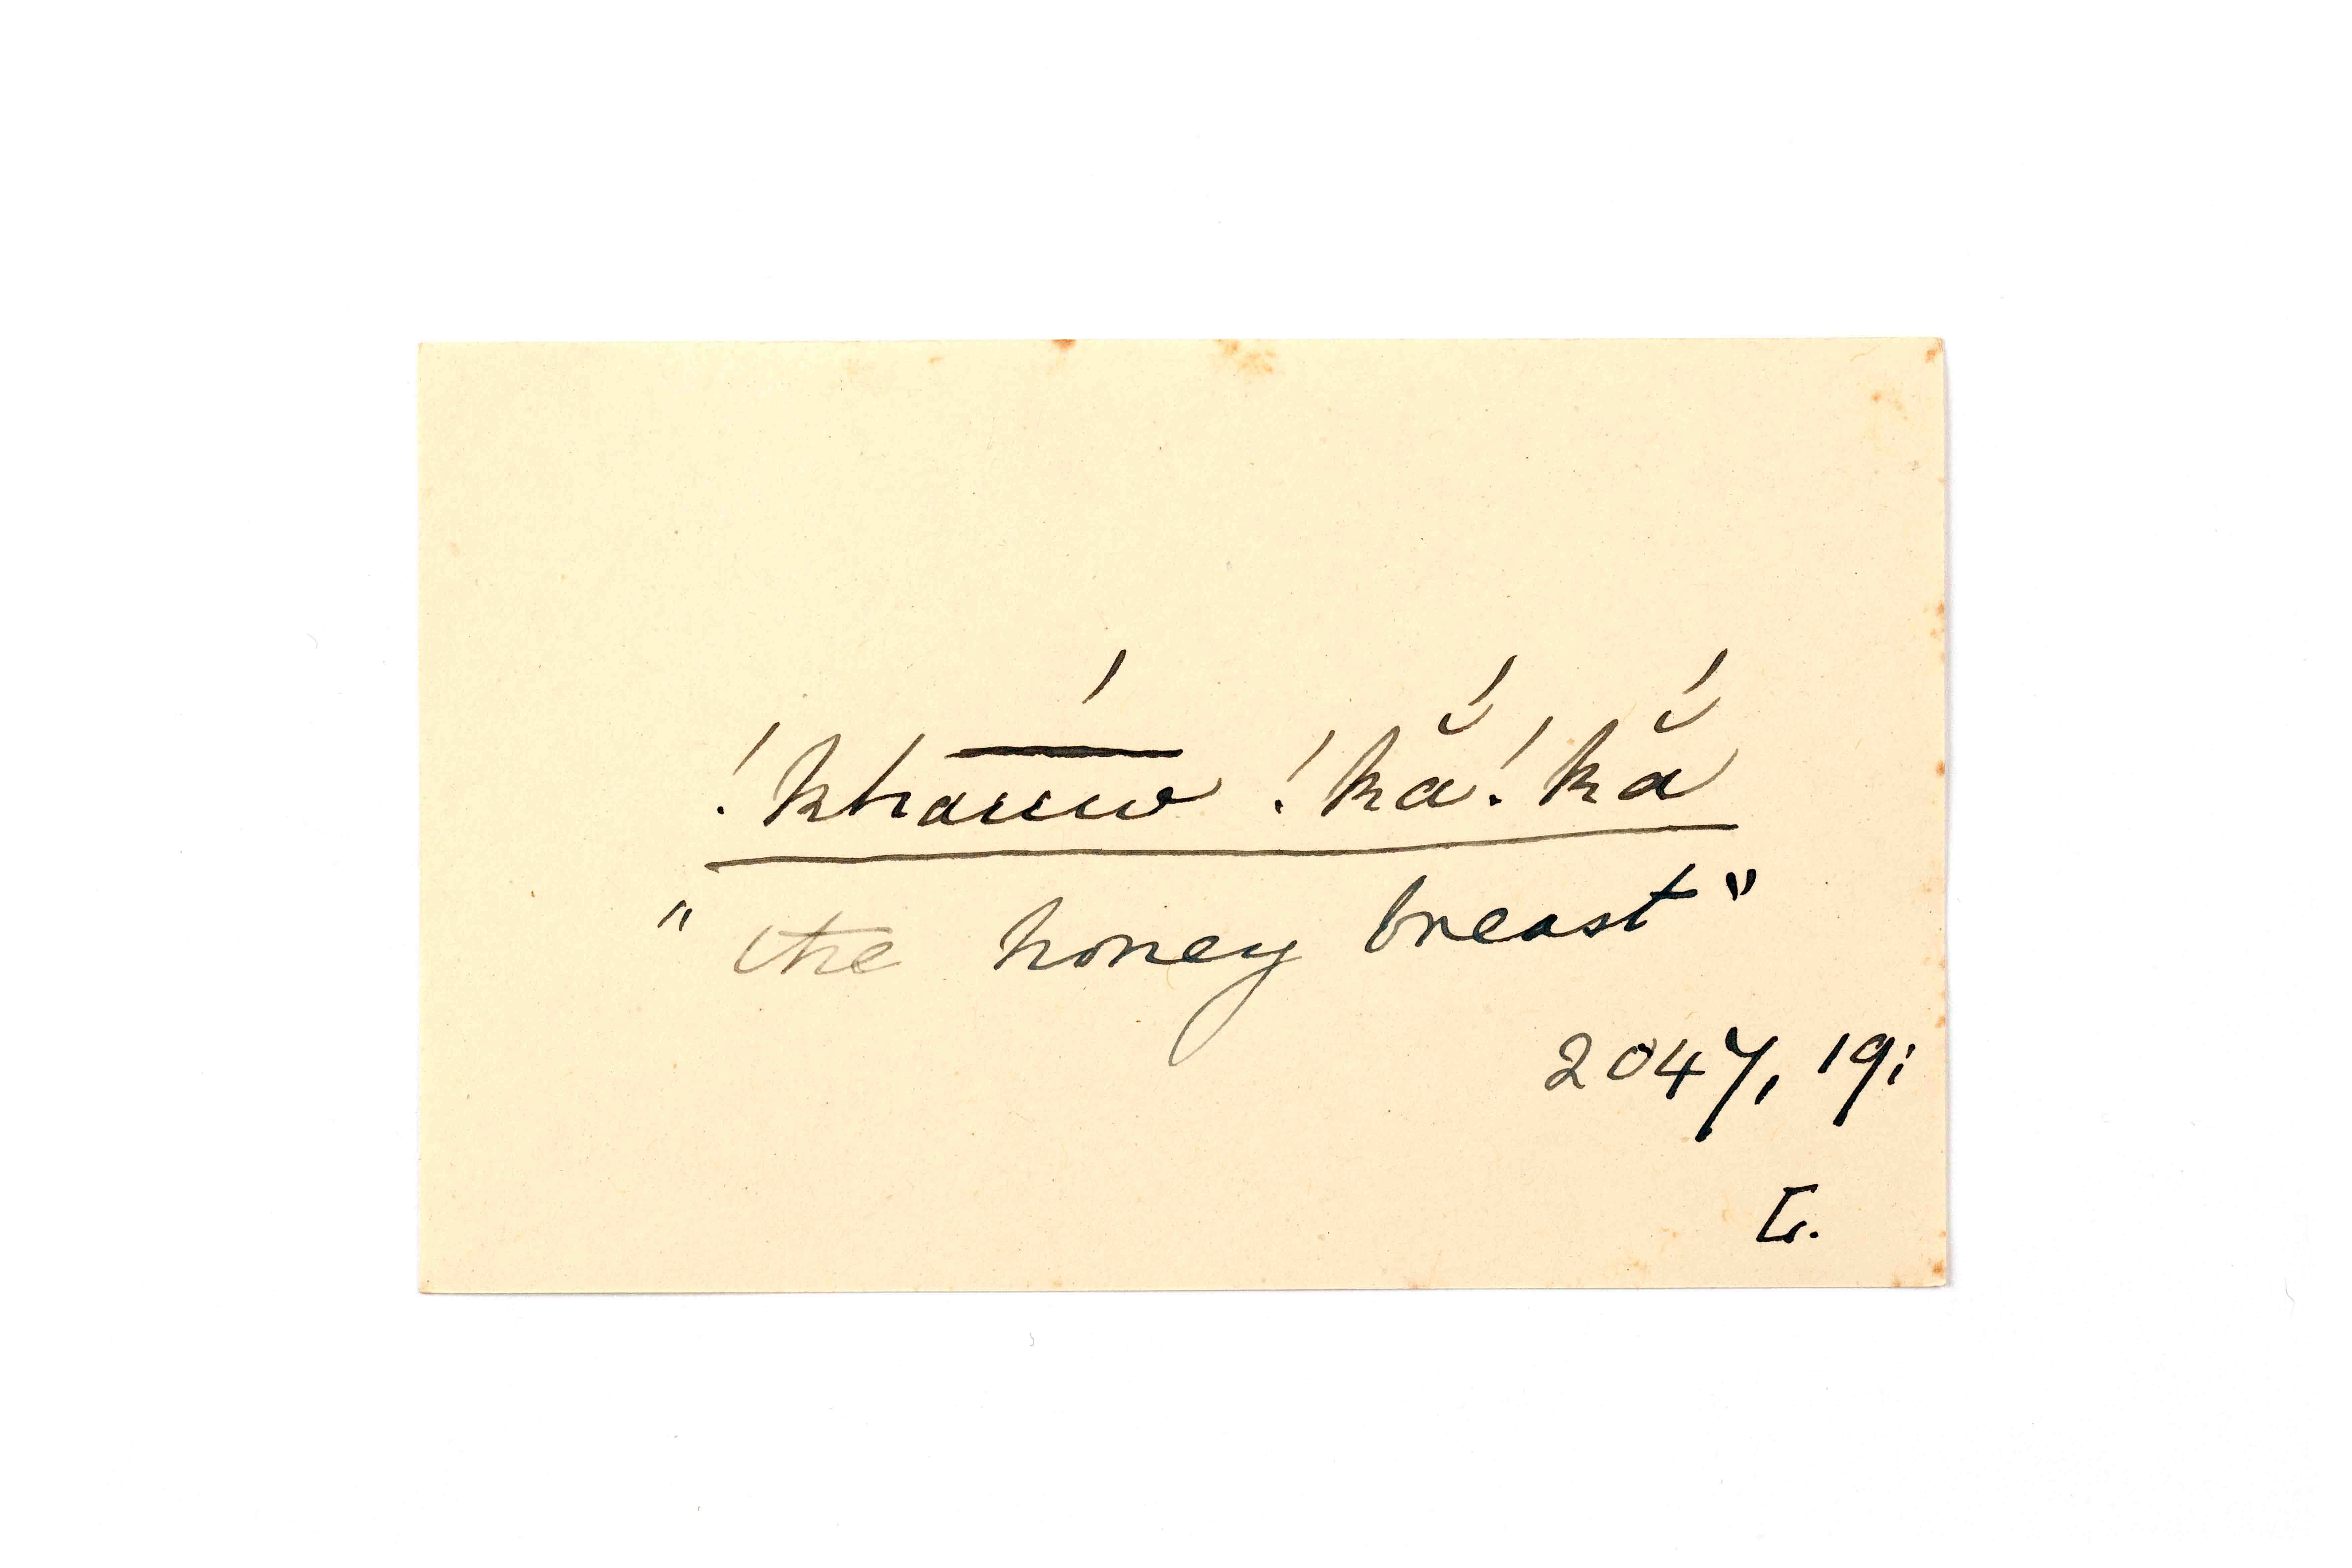 !khāuúw !kắ!kắ
"the honey breast"
2047, 19;
L.